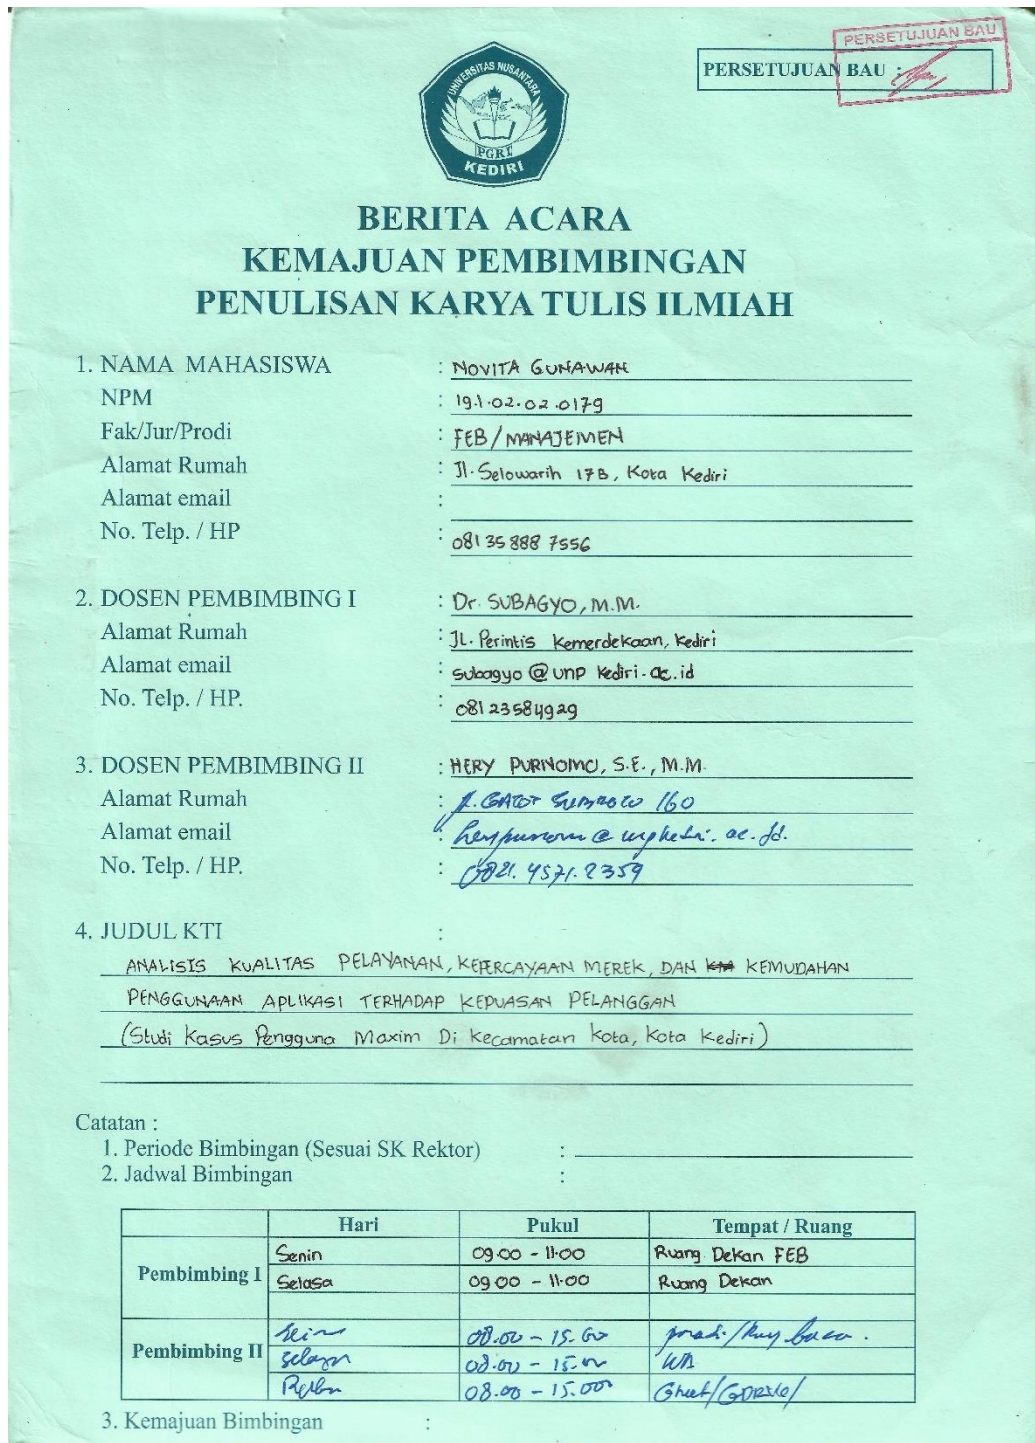 PERSETUJUAN BAU
PERSETUJUAN BAU :
UNIVERSITAS NUSANTARA
PGRI
KEDIRI
BERITA ACARA
KEMAJUAN PEMBIMBINGAN
PENULISAN KARYA TULIS ILMIAH
1. NAMA MAHASISWA : NOVITA GUNAWAN
NPM : 19.1.02.02.0179
Fak/Jur/Prodi : FEB/MANAJEMEN
Alamat Rumah : Jl. Selowarih 17B, Kota Kediri
Alamat email :
No. Telp. / HP : 081 35 888 7556
2. DOSEN PEMBIMBING I : Dr. SUBAGYO, M.M.
Alamat Rumah : JL. Perintis Kemerdekaan, Kediri
Alamat email : subagyo@unp kediri.ac.id
No. Telp. / HP. : 081 23584929
3. DOSEN PEMBIMBING II : HERY PURNOMO, S.E., M.M.
Alamat Rumah : Jl. GATOT SUBROTO 160
Alamat email : @ . ac.id.
No. Telp. / HP. : 0821. 4571. 2359
4. JUDUL KTI :
ANALISIS KUALITAS PELAYANAN, KEPERCAYAAN MEREK, DAN KEMUDAHAN
PENGGUNAAN APLIKASI TERHADAP KEPUASAN PELANGGAN
(Studi Kasus Pengguna Maxim Di Kecamatan Kota, Kota Kediri)
Catatan :
1. Periode Bimbingan (Sesuai SK Rektor) :
2. Jadwal Bimbingan :
Hari Pukul Tempat / Ruang
Pembimbing I Senin 09.00 - 11.00 Ruang Dekan FEB
Selasa 09.00 - 11.00 Ruang Dekan
Pembimbing II Senin 08.00 - 15.00 prodi/Ruang baca.
Selasa 08.00 - 15.00 WA
Rabu 08.00 - 15.00
3. Kemajuan Bimbingan :